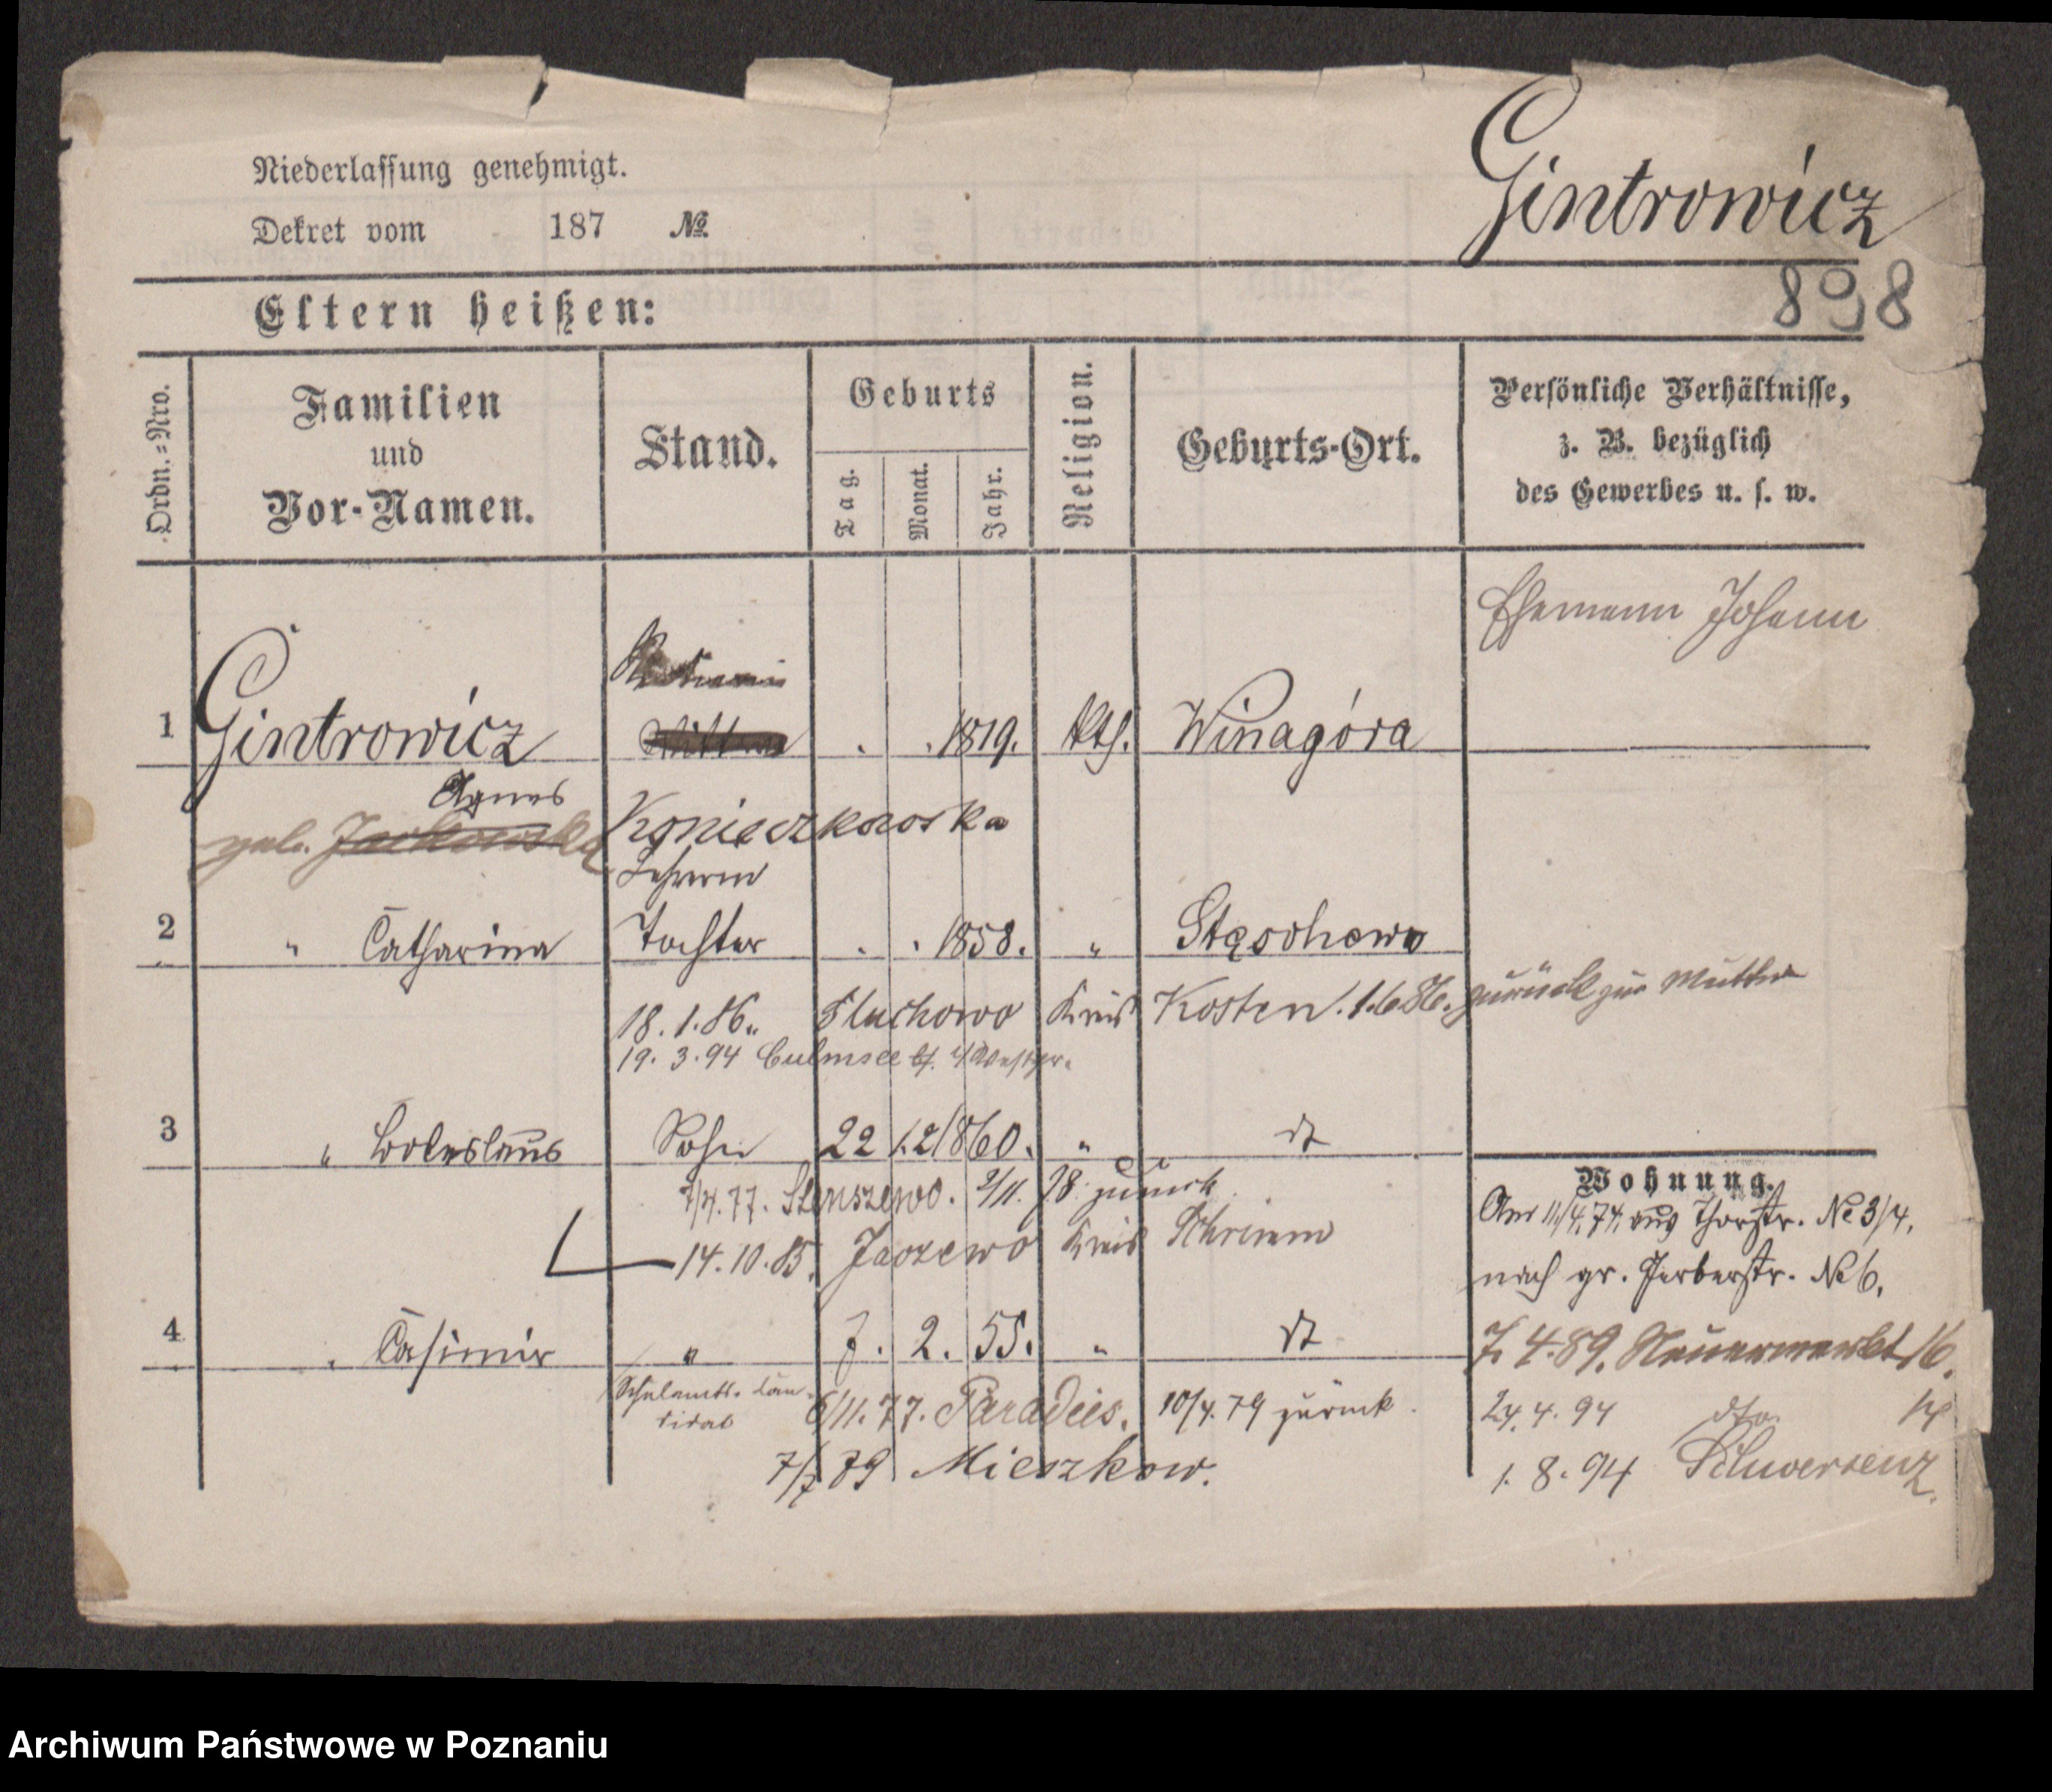 Niederlassung genehmigt.
Dekret vom 187 №
Gintrowicz
898
Eltern heißen:
Ordn.=Nro.
Familien und Vor-Namen.
Stand.
Geburts
Tag.
Monat.
Jahr.
Religion.
Geburts-Ort.
Persönliche Verhältnisse,
z. B. bezüglich
des Gewerbes u. s. w.
Ehemann Johann
1 Gintrowicz Wittwe . . 1819. kth. Winagóra
Agnes
geb. Jackowska Konieczkowska
Lehrerin
2 " Catharina Tochter . . 1858. " Stęschewo
18.1.86. Głuchowo Kreis Kosten. 1.6.86. zurück zur Mutter
19.3.94 Culmsee Westpr.
3 " Boleslaus Sohn 22 12 1860. " dt
7/4.77. Stenszewo. 2/11.78 zurück
14.10.85. Jaszewo Kreis Schrimm
4 " Casimir " 7. 2. 55. " dt
Schulamts-Can-
didat
6/11.77. Paradies. 10/4.79 zurück.
7/7 79 Mieszkow.
Wohnung.
Am 11/4.74. aus Thorstr. № 3/4.
nach gr. Gerberstr. № 6.
7.4.89. Neuermarkt 16.
24.4.94 dto. 14
1.8.94 Schwersenz.
Archiwum Państwowe w Poznaniu